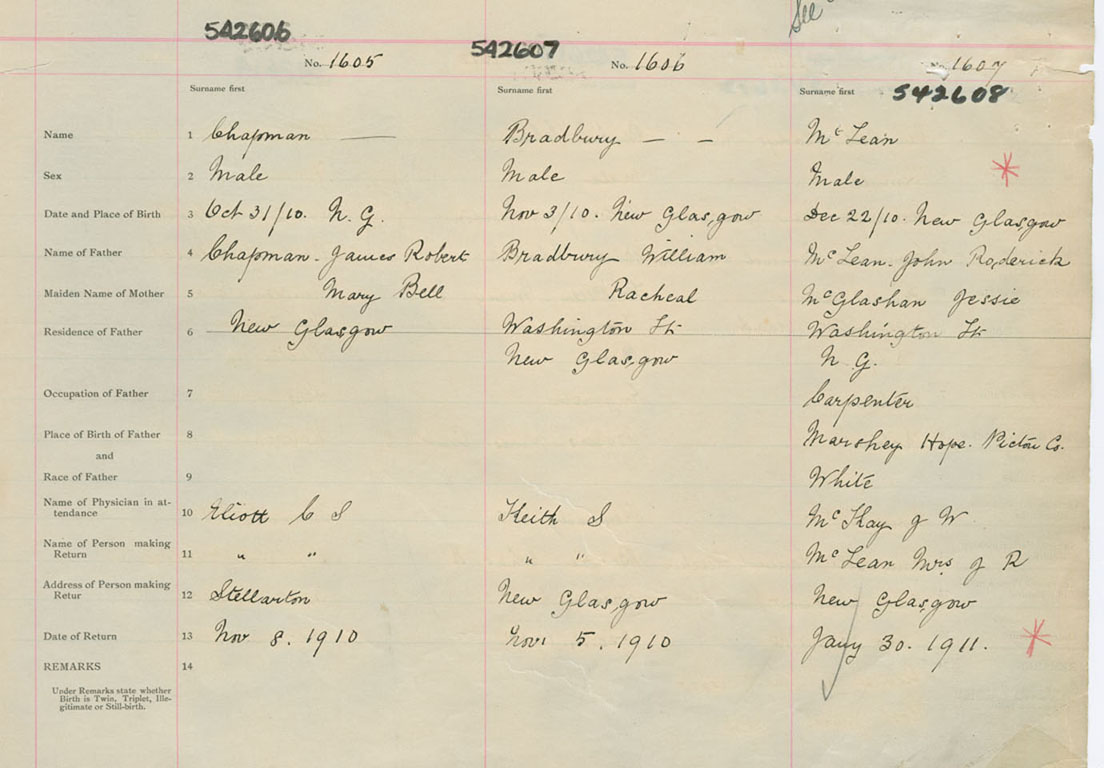 See
542606
542607
No. 1605
No. 1606
No. 1607
Surname first
Surname first
Surname first
542608
Name 1 Chapman — Bradbury — — McLean
Sex 2 Male Male Male
Date and Place of Birth 3 Oct 31/10. N. G. Nov 3/10. New Glasgow Dec 22/10. New Glasgow
Name of Father 4 Chapman. James Robert Bradbury William McLean. John Roderick
Maiden Name of Mother 5 Mary Bell Racheal McGlashan Jessie
Residence of Father 6 New Glasgow Washington St. Washington St.
New Glasgow N G.
Occupation of Father 7 Carpenter
Place of Birth of Father 8 Marshey Hope. Pictou Co.
and
Race of Father 9 White
Name of Physician in at-
tendance 10 Eliott C S Keith S McKay J W
Name of Person making
Return 11 " " " " McLean Mrs J R
Address of Person making
Retur 12 Stellarton New Glasgow New Glasgow
Date of Return 13 Nov 8. 1910 Nov 5. 1910 Jany 30. 1911.
REMARKS 14
Under Remarks state whether
Birth is Twin, Triplet, Ille-
gitimate or Still-birth.